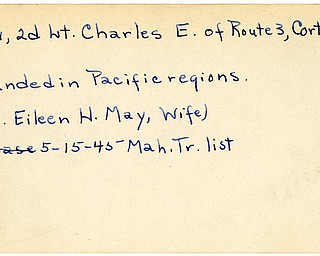 , 2d Lt. Charles E. of Route 3, Cort
nded in Pacific regions.
. Eileen H. May, Wife)
ase 5-15-45 Mah. Tr. list